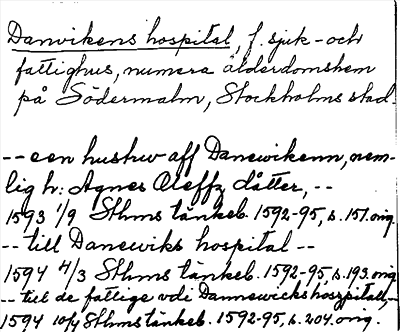 Danvikens hospital, f. sjuk- och
fattighus, numera ålderdomshem
på Södermalm, Stockholms stad.
-- een hushw aff Danewikenn, nem-
lig h: Agnes Oleffz dåtter, --
1593 1/9 Sthms tänkeb. 1592-95, s. 151. orig.
-- till Danewiks hospital --
1594 4/3 Sthms tänkeb. 1592-95, s. 193. orig.
-- till de fattige vdi Dannewicks hospitall, --
1594 10/4 Sthms tänkeb. 1592-95, s. 204. orig.